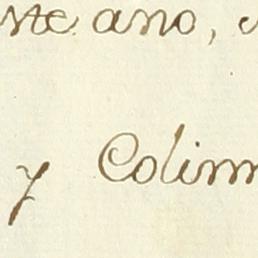 ste ano,
y Colim